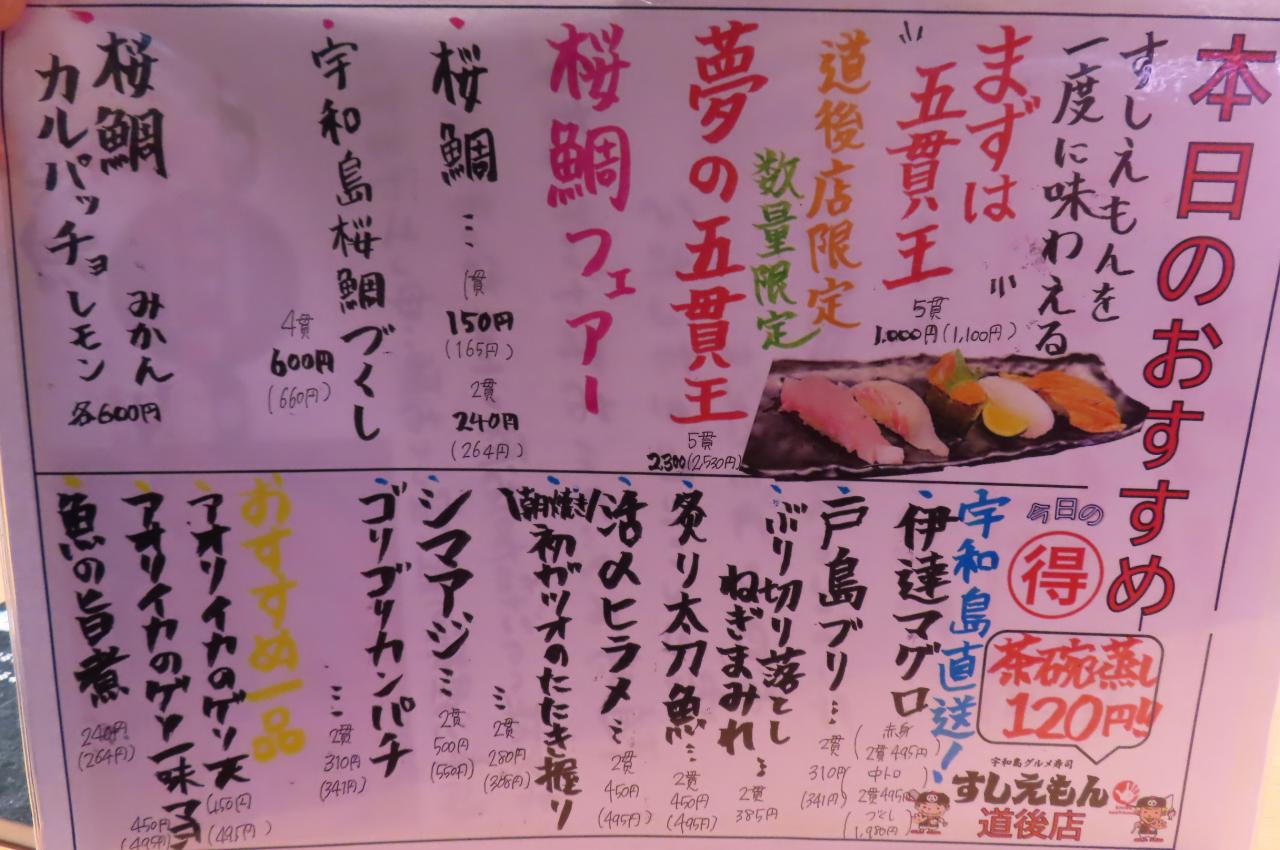 本日のおすすめ
すしえもんを
一度に味わえる
まずは
五貫王
5貫
1,000円(1,100円)
道後店限定
数量限定
夢の五貫王
5貫
2,300(2,530円)
桜鯛フェアー
桜鯛…
1貫
150円
(165円)
2貫
240円
(264円)
宇和島桜鯛づくし
4貫
600円
(660円)
桜鯛
カルパッチョ
みかん
レモン
各600円
今日の
得
茶碗蒸し
120円!!
宇和島グルメ寿司
すしえもん
道後店
宇和島直送!
伊達マグロ
赤身
2貫495円
中トロ
2貫495円
づくし
1,980円
戸島ブリ…
2貫
310円
(341円)
ぶり切り落とし
ねぎまみれ…
2貫
385円
炙り太刀魚…
2貫
450円
(495円)
活〆ヒラメ…
2貫
450円
(495円)
朝焼き
初ガツオのたたき握り
…
2貫
280円
(308円)
シマアジ…
2貫
500円
(550円)
ゴリゴリカンパチ
…
2貫
310円
(341円)
おすすめ一品
アオリイカのゲソ天
450円
(495円)
アオリイカのゲソ一味マヨ
450円
(495円)
魚の旨煮
240円
(264円)